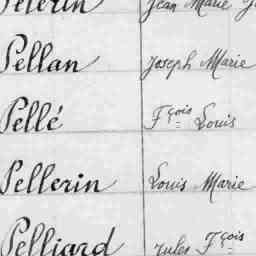 Pelerin Jean Marie
Pellan Joseph Marie
Pellé Fçois Louis
Pellerin Louis Marie
Pelliard Jules Fçois